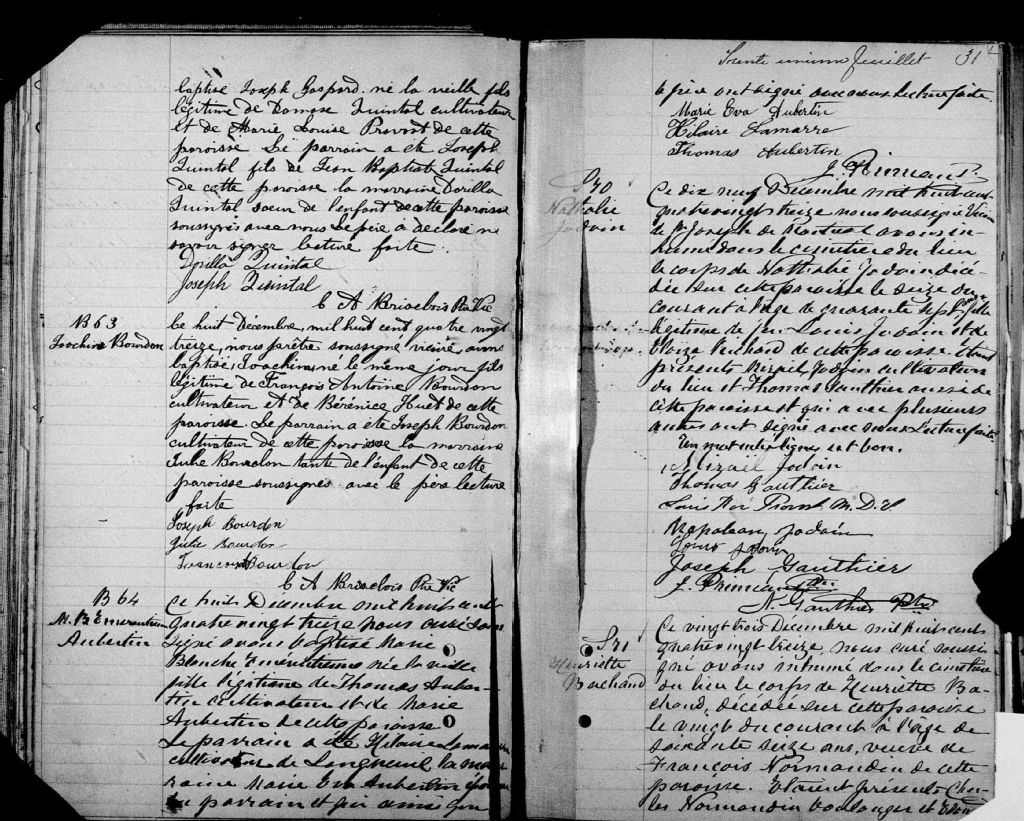 baptisé Joseph Gaspard né la vieille fils
légitime de Domase Quintal cultivateur
et de Marie Louise Provost de cette
paroisse Le parrain a été Joseph
Quintal fils de Jean Baptiste Quintal
de cette paroisse la marraine Dorilla
Quintal soeur de l'enfant de cette paroisse
soussignés avec nous Le père a déclaré ne
savoir signer lecture faite.
Dorilla Quintal
Joseph Quintal
C A Brisebois Ptre Vic
B 63
Joachim Bourdon
Le huit Décembre, mil huit cent quatre vingt
treize, nous prêtre soussigné vicaire, avons
baptisé, Joachim, né le même jour fils
légitime de François Antoine Bourdon
cultivateur et de Bérénice Huet de cette
paroisse. Le parrain a été Joseph Bourdon
cultivateur de cette paroisse la marraine
Julie Bourdon tante de l'enfant de cette
paroisse soussignés avec le père lecture
faite
Joseph Bourdon
Julie Bourdon
Bourdon
C A Brisebois Ptre Vic
B 64
M. B. Emérentienne
Aubertin
Ce huit Décembre mil huit cent
quatre vingt treize nous curé sous
signé avons baptisé Marie
Blanche Emérentienne née la veille
fille légitime de Thomas Auber-
tin cultivateur et de Marie
Aubertin de cette paroisse
Le parrain a été Hilaire Lamarre
cultivateur de Longueuil la mar
raine Marie Eva Aubertin épouse
du parrain et qui ainsi que
Trente unième feuillet 31
le père ont signé avec nous Lecture faite.
Marie Eva Aubertin
Hilaire Lamarre
Thomas Aubertin
J. Primeau P.
S 70
Nathalie
Jodoin
Ce dix neuf Décembre mil huit cent
quatre vingt treize nous soussigné Vicaire
de St Joseph de Montréal avons in-
humé dans le cimetière du lieu
le corps de Nathalie Jodoin décé-
dée sur cette paroisse le seize du
courant à l'âge de quarante sept ans fille
légitime de feu Louis Jodoin et de
de cette paroisse Etaient
présents Misaël Jodoin cultivateur
du lieu et Thomas Gauthier aussi de
cette paroisse et qui avec plusieurs
autres ont signé avec nous Lecture faite
Un mot interligne est bon.
Misael Jodoin
Thomas Gauthier
Louis M.D.
Napoléon Jodoin
Louis Jodoin
Joseph Gauthier
J. Primeau Ptre
A. Gauthier Ptre
S 71
Henriette
Bachand
Ce vingt trois Décembre mil huit cent
quatre vingt treize, nous curé soussi
gné avons inhumé dans le cimetière
du lieu le corps de Henriette Ba-
chand, décédée sur cette paroisse
le vingt du courant à l'âge de
soixante seize ans, veuve de
François Normandin de cette
paroisse. Etaient présents Char-
les Normandin boulanger et